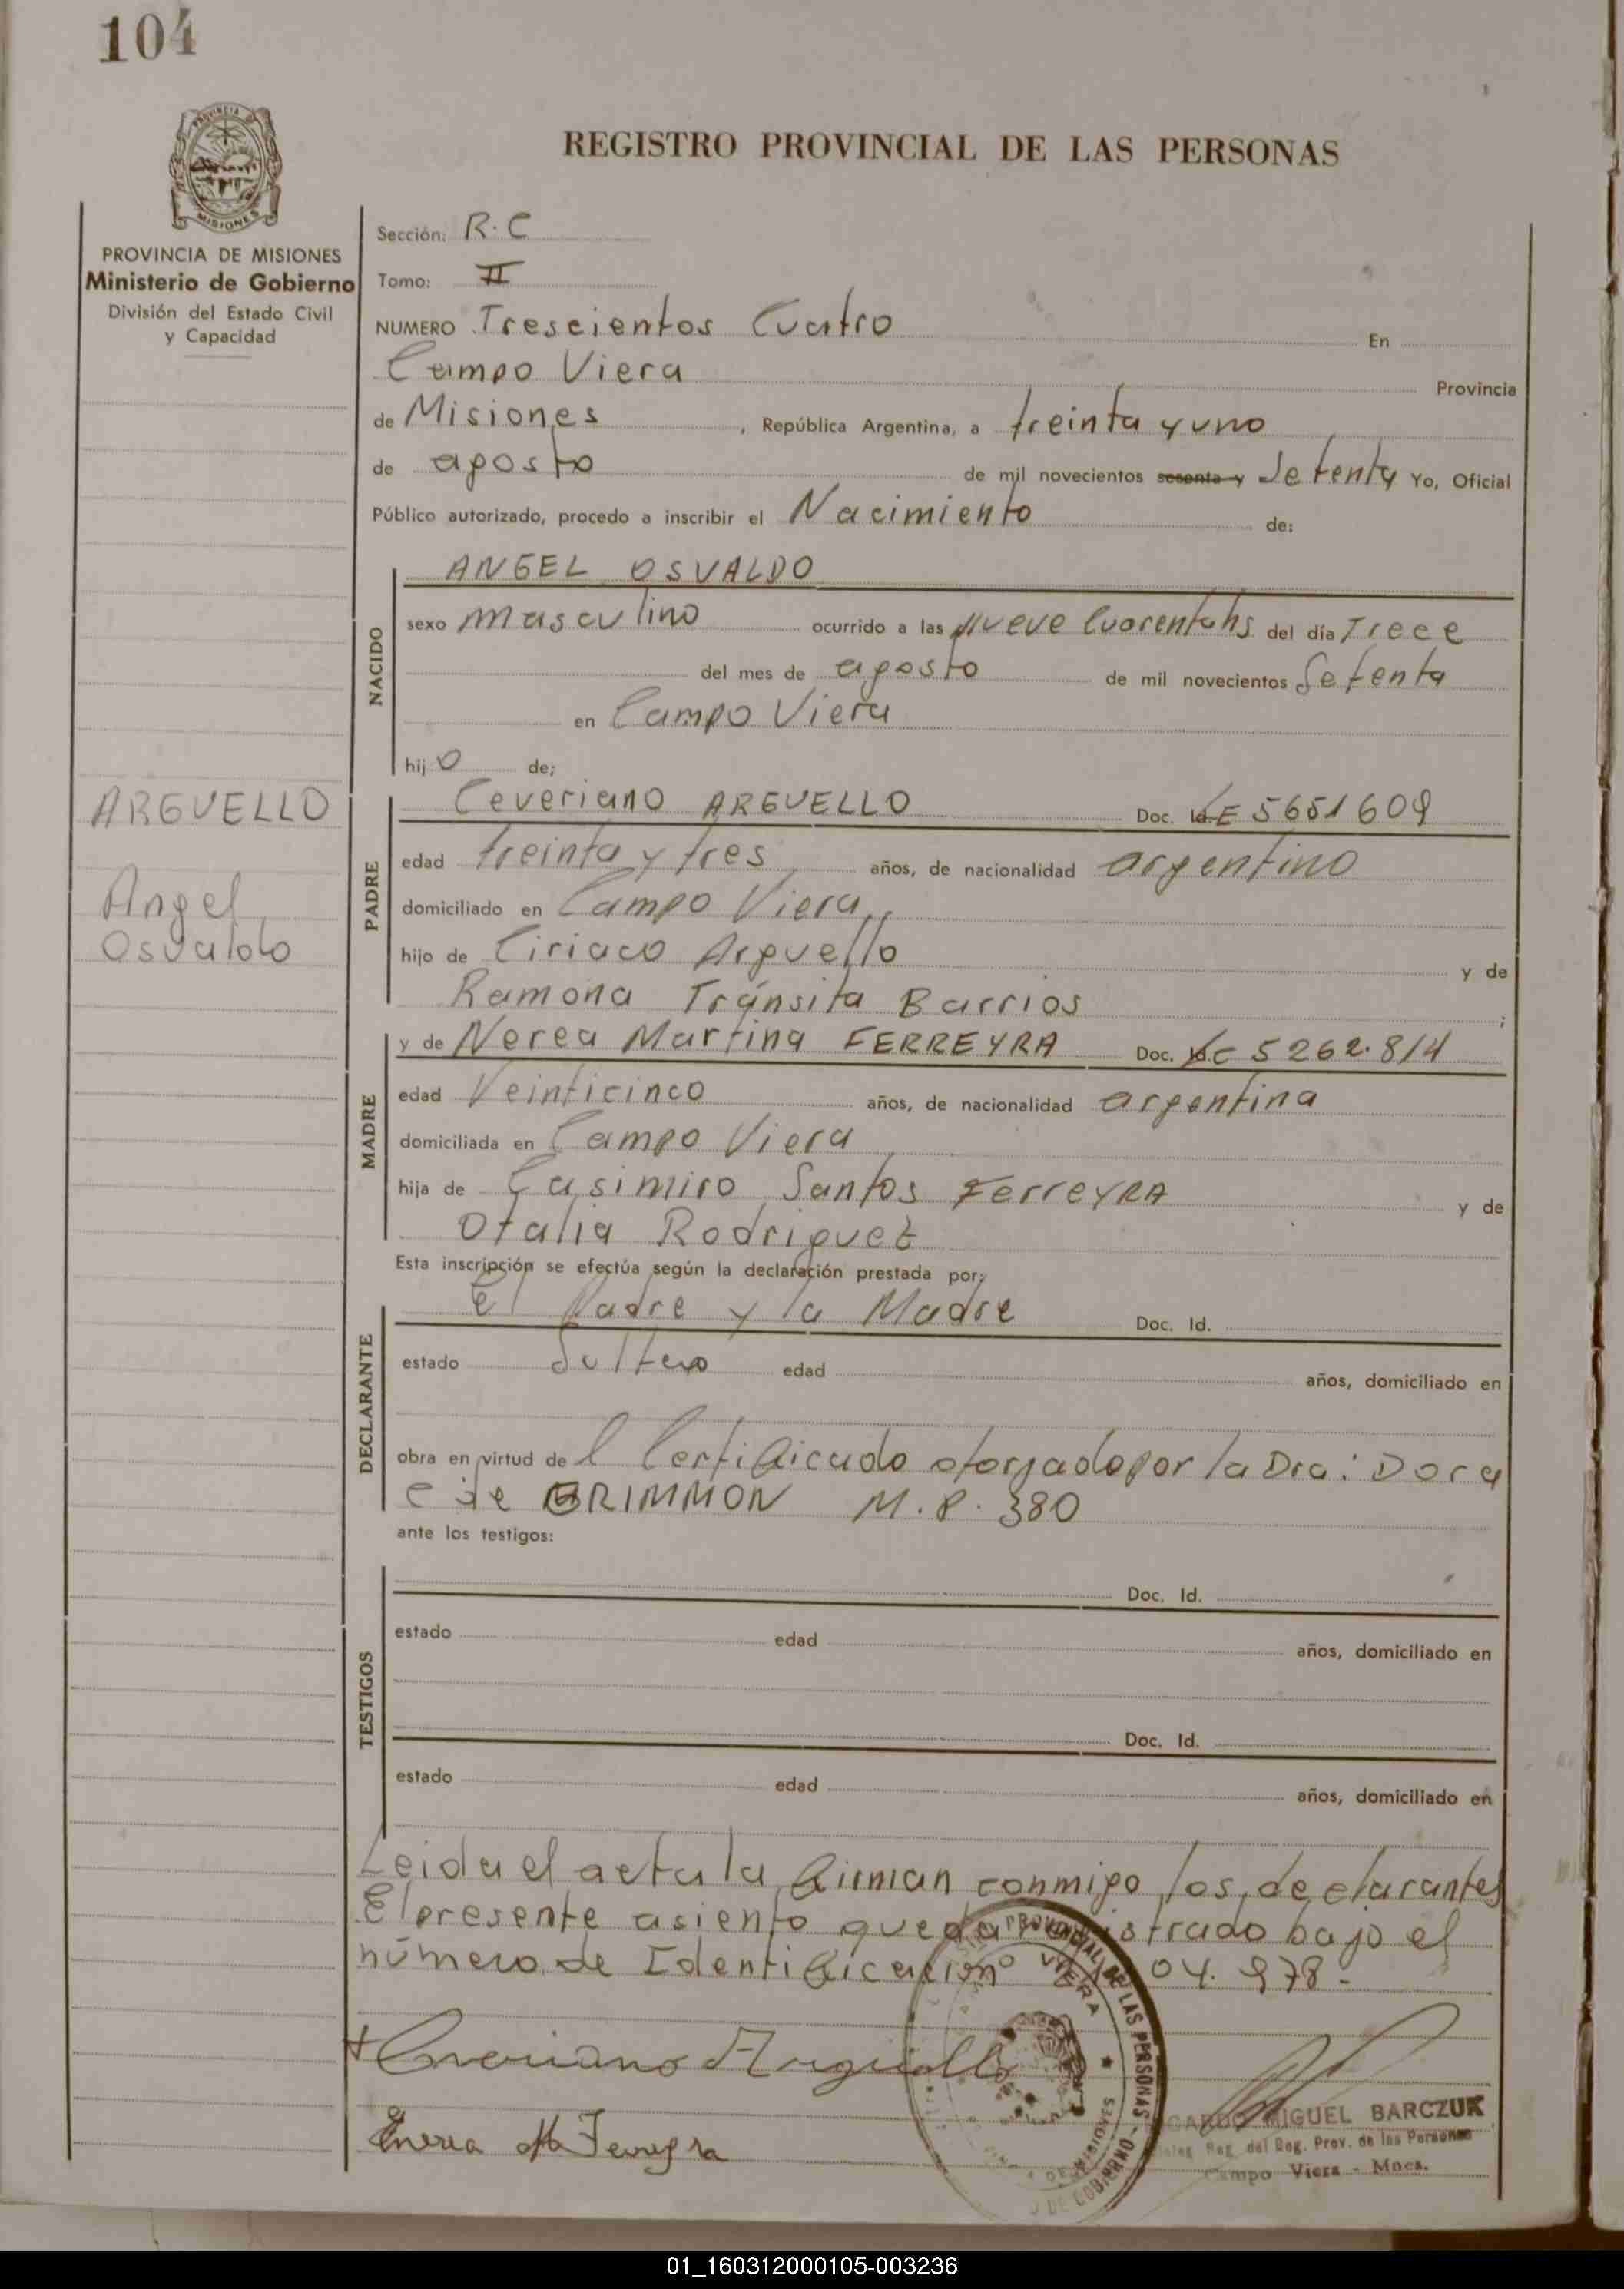 104
PROVINCIA DE MISIONES
Ministerio de Gobierno
División del Estado Civil
y Capacidad
REGISTRO PROVINCIAL DE LAS PERSONAS
Sección: R.C
Tomo: II
NUMERO Trescientos Cuatro En
Campo Viera Provincia
de Misiones , República Argentina, a treinta y uno
de agosto de mil novecientos sesenta y Setenta Yo, Oficial
Público autorizado, procedo a inscribir el Nacimiento de:
NACIDO
ANGEL OSVALDO
sexo masculino ocurrido a las Nueve Cuarenta hs del día Trece
del mes de agosto de mil novecientos Setenta
en Campo Viera
hijo de;
ARGUELLO
Angel
Osvaldo
PADRE
Ceveriano ARGUELLO Doc. LE 5651609
edad treinta y tres años, de nacionalidad argentino
domiciliado en Campo Viera
hijo de Ciriaco Arguello y de
Ramona Tránsita Barrios ;
MADRE
y de Nerea Martina FERREYRA Doc. LC 5262.814
edad Veinticinco años, de nacionalidad argentina
domiciliada en Campo Viera
hija de Casimiro Santos FerreYRA y de
Otalia Rodriguez
Esta inscripción se efectúa según la declaración prestada por;
DECLARANTE
El Padre y la Madre Doc. Id.
estado Soltero edad años, domiciliado en
obra en virtud del Certificado otorgado por la Dra: Dora
C de GRIMMON M.P. 380
ante los testigos:
TESTIGOS
Doc. Id.
estado edad años, domiciliado en
Doc. Id.
estado edad años, domiciliado en
Leida el acta la firman conmigo los declarantes
El presente asiento queda registrado bajo el
número de Identificación 04.978.-
Ceveriano Arguello
Nerea M Ferreyra
PROVINCIAL DE LAS PERSONAS
VIERA
MISIONES
MIGUEL BARCZUK
del Reg. Prov. de las Personas
Campo Viera - Mnes.
01_160312000105-003236